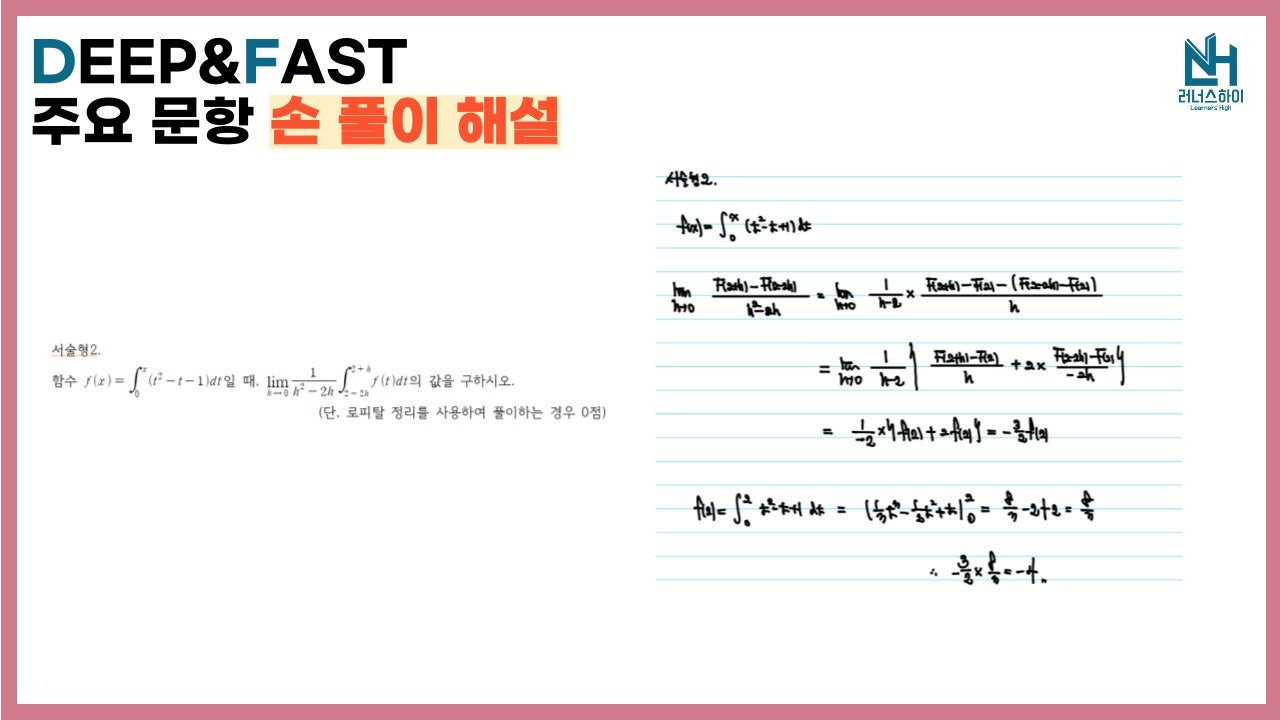 DEEP&FAST
주요 문항 손 풀이 해설
러너스하이
Learners High
서술형2.
함수 f(x) = ∫_0^x (t² − t − 1)dt일 때, lim_{h→0} 1/(h² − 2h) ∫_{2−2h}^{2+h} f(t)dt의 값을 구하시오.
(단, 로피탈 정리를 사용하여 풀이하는 경우 0점)
서술형2.
f(x) = ∫_0^x (t²-t+1) dt
lim_{h→0} (F(2+h) − F(2-2h))/(h²−2h) = lim_{h→0} 1/(h-2) × (F(2+h) − F(2) − (F(2-2h) − F(2)))/h
= lim_{h→0} 1/(h-2) { (F(2+h) − F(2))/h + 2× (F(2-2h) − F(2))/(-2h) }
= 1/(-2) × { f(2) + 2f(2) } = -3/2 f(2)
f(2) = ∫_0^2 t²-t+1 dt = [1/3 t³ − 1/2 t² + t]_0^2 = 8/3 − 2 + 2 = 8/3
∴ -3/2 × 8/3 = -4.